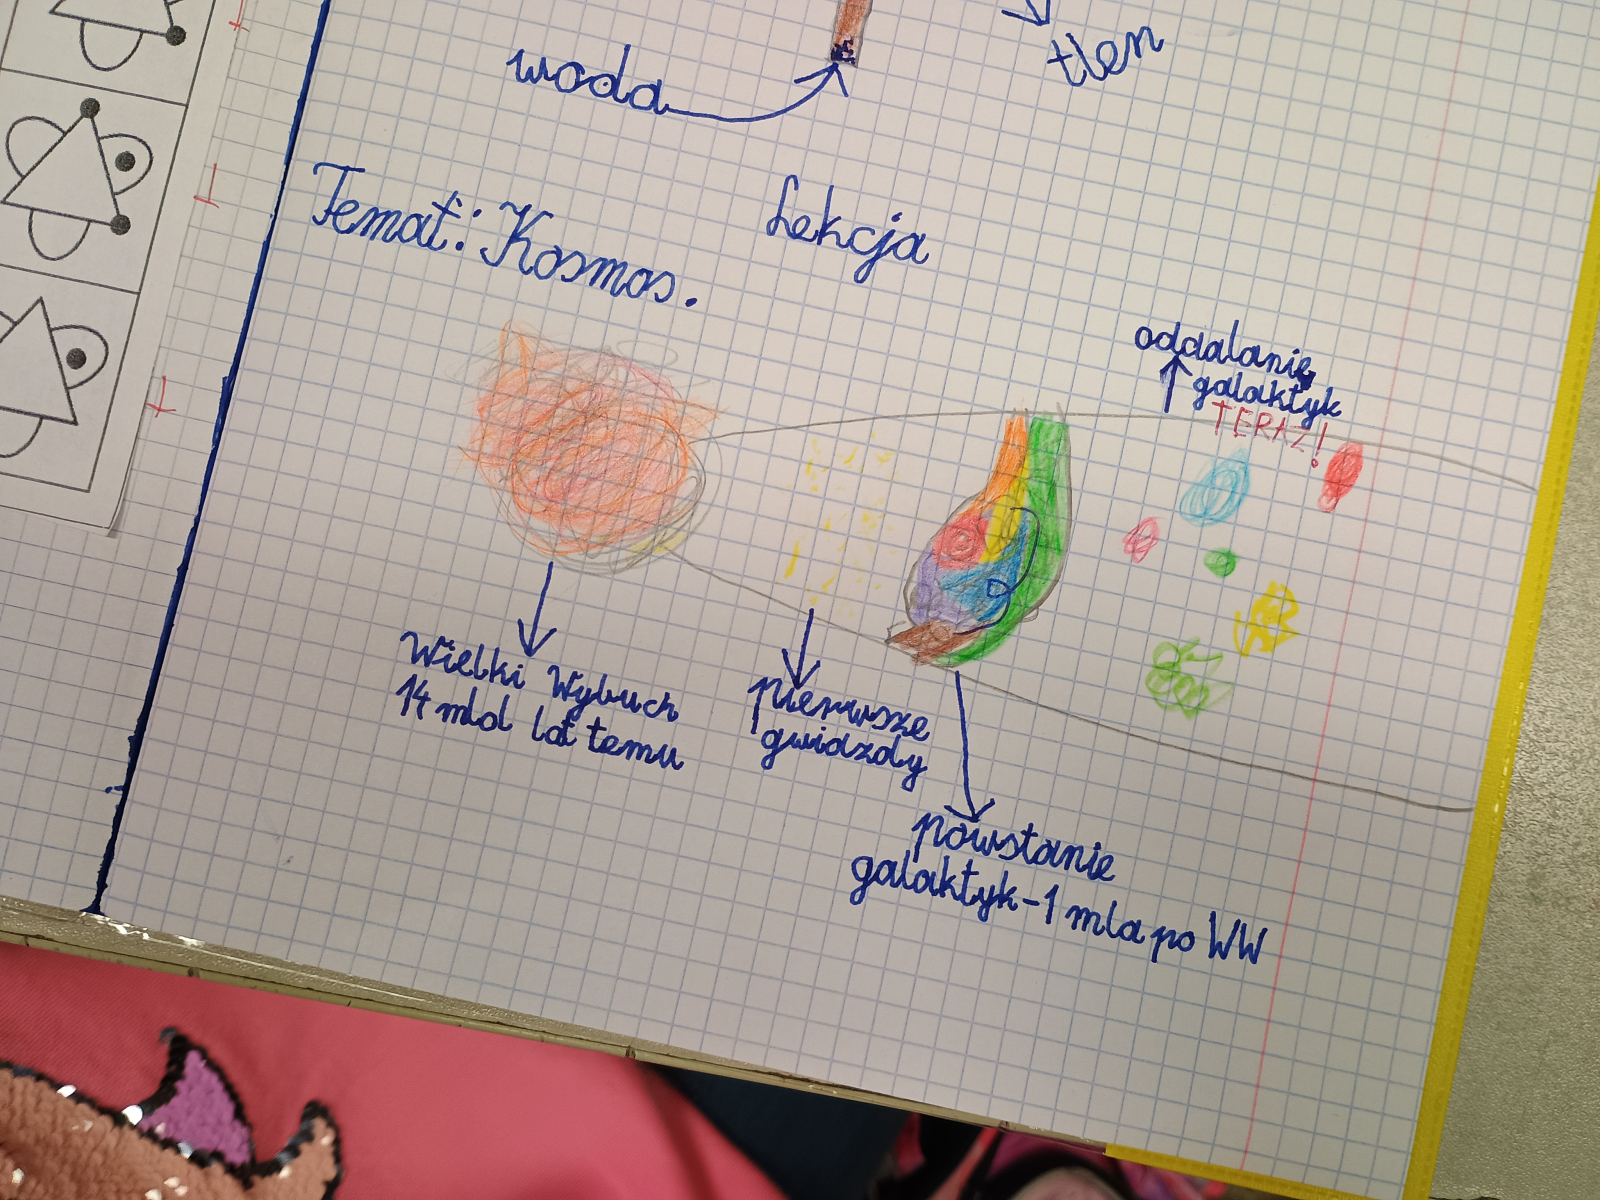 woda
tlen
Lekcja
Temat: Kosmos.
oddalanie
galaktyk
TERAZ!
Wielki Wybuch
14 mld lat temu
pierwsze
gwiazdy
powstanie
galaktyk-1 mla po WW